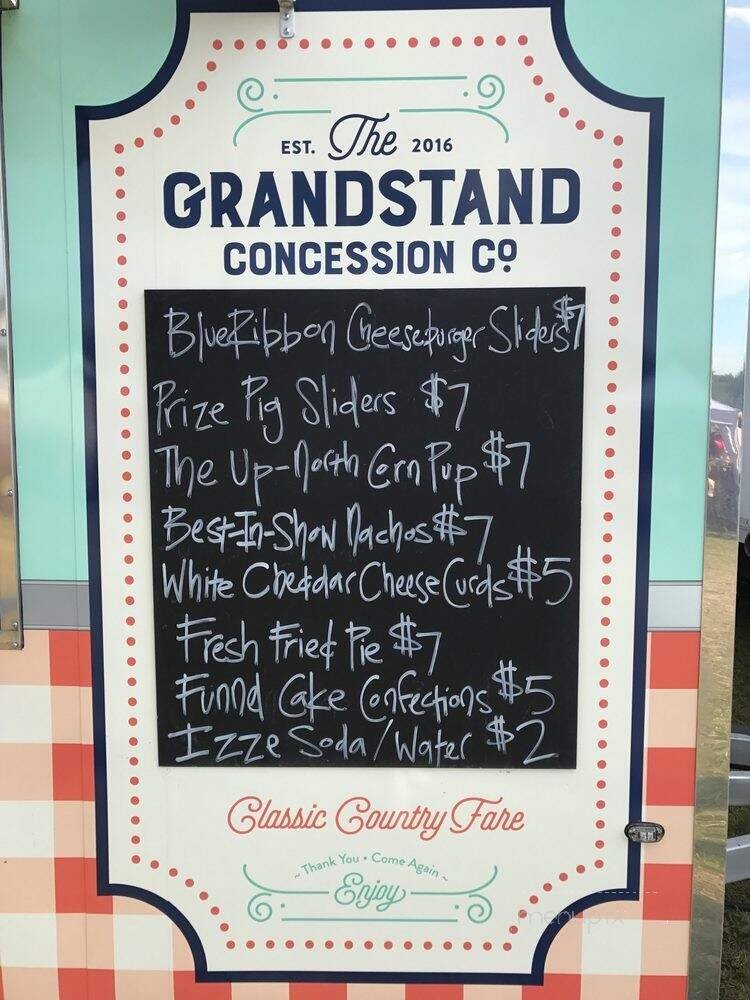 EST. The 2016
GRANDSTAND
CONCESSION Co
BlueRibbon Cheeseburger Sliders $7
Prize Pig Sliders $7
The Up-North Corn Pup $7
Best-In-Show Nachos $7
White Cheddar Cheese Curds $5
Fresh Fried Pie $7
Funnel Cake Confections $5
Izze Soda/Water $2
Classic Country Fare
~ Thank You • Come Again ~
Enjoy
menupix